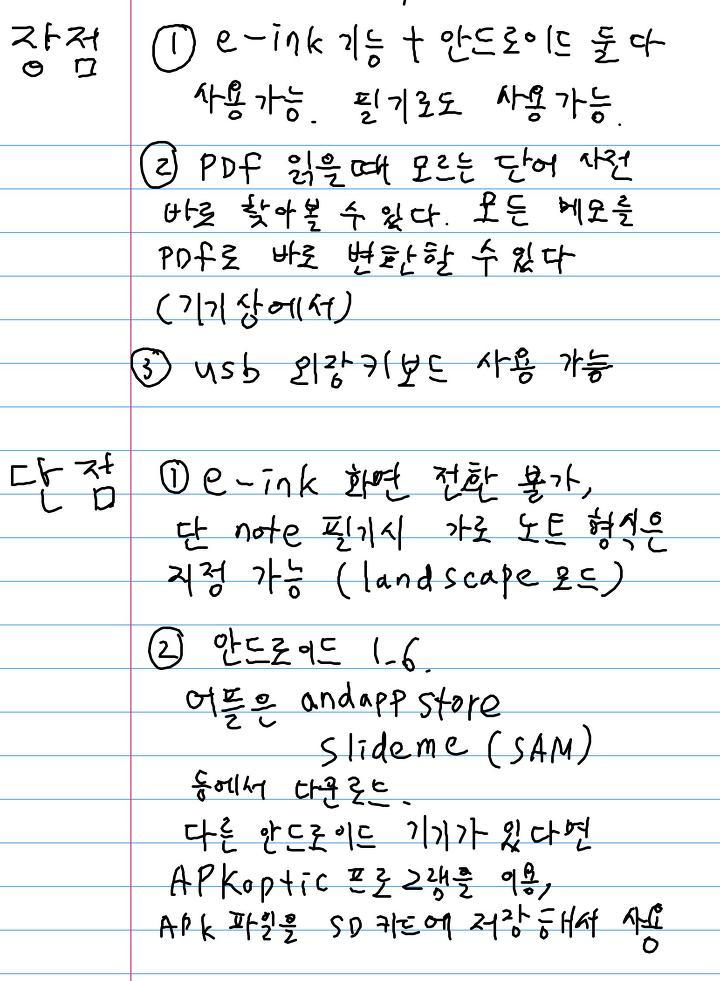 장점 ① e-ink 기능 + 안드로이드 둘 다
사용가능. 필기로도 사용가능.
② PDF 읽을때 모르는 단어 사전
바로 찾아볼 수 있다. 모든 메모를
PDF로 바로 변환할 수 있다
(기기상에서)
③ usb 외장키보드 사용 가능
단점 ① e-ink 화면 전환 불가,
단 note 필기시 가로 노트 형식은
지정 가능 (landscape 모드)
② 안드로이드 1.6.
어플은 andapp store
slideme (SAM)
등에서 다운로드.
다른 안드로이드 기기가 있다면
APKoptic 프로그램을 이용,
APK 파일을 SD카드에 저장해서 사용